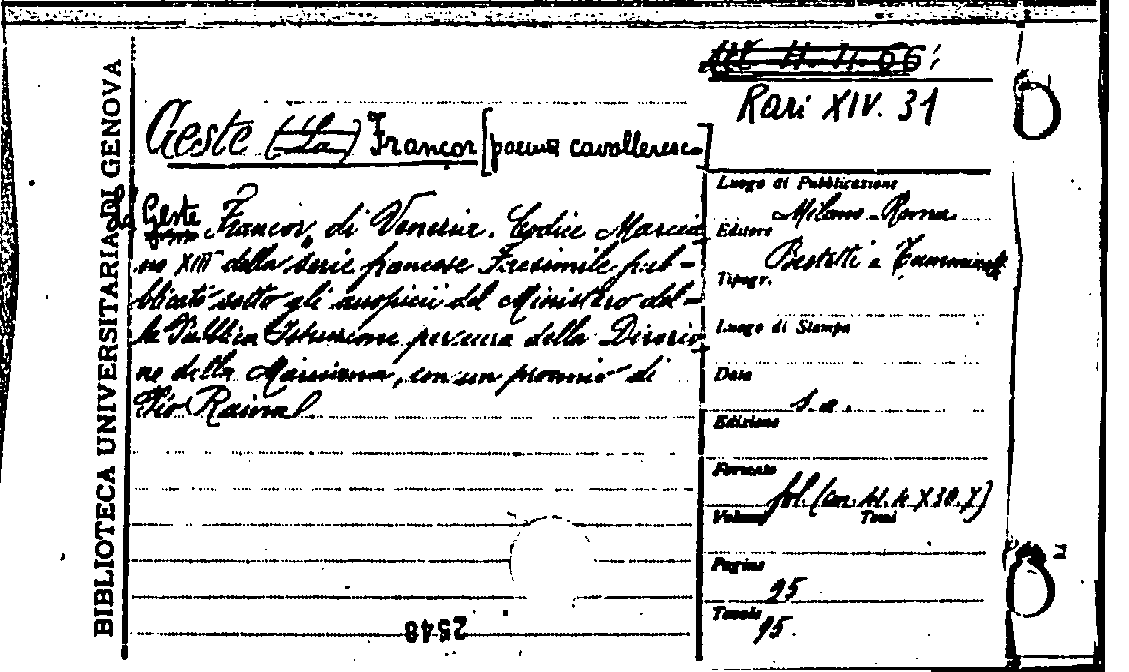 BIBLIOTECA UNIVERSITARIA DI GENOVA
Rari XIV. 31
Geste (La) Francor [poema cavalleresco]
La Geste Francor di Venezia. Codice Marcia
no XIII della serie francese Facsimile pub-
blicato sotto gli auspicii del Ministero del-
la Pubblica Istruzione per cura della Direzio
ne della Marciana, con un proemio di
Pio Rajna
Luogo di Pubblicazione
Milano-Roma
Editore
Bestetti e Tumminelli
Tipogr.
Luogo di Stampa
Data
s.a.
Edizione
Formato
fol. (cm.
Volumi Tomi
Pagine
95
Tavole
95.
2548